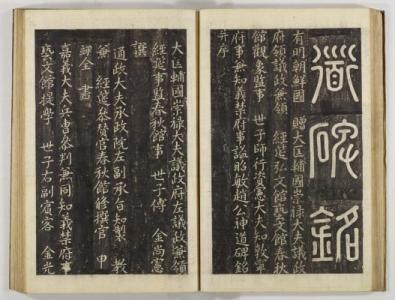 道碑銘
有明朝鮮國 贈大匡輔國崇祿大夫議政
府領議政兼領 經筵弘文館藝文館春秋
館觀象監事 世子師行資憲大夫知敦寧
府事兼知義禁府事謚昭敏趙公神道碑銘
并序
大匡輔國崇祿大夫議政府左議政兼領
經筵事監春秋館事 世子傅 金尚憲
撰
通政大夫承政院左副承旨知製 教
兼 經筵參贊官春秋館修撰官 申
翊全 書
嘉義大夫兵曹參判兼同知義禁府事
藝文館提學 世子右副賓客 金光